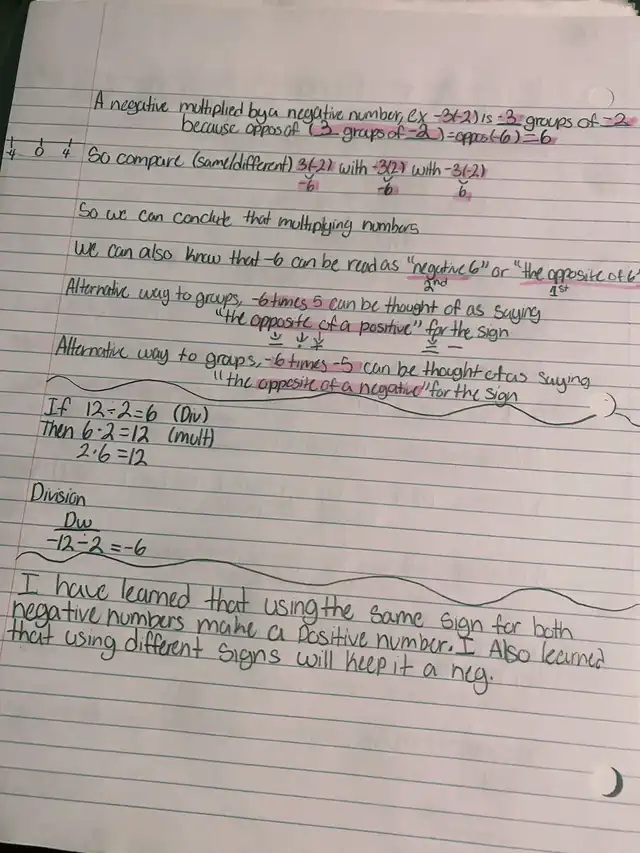 A negative multiplied by a negative number, ex -3(-2) is -3 groups of -2
because oppos of (3 groups of -2) = oppos(-6) = 6
So compare (same/different) 3(-2) with -3(2) with -3(-2)
-6 -6 6
So we can conclude that multiplying numbers
We can also know that -6 can be read as "negative 6" or "the opposite of 6"
2nd 1st
Alternative way to groups, -6 times 5 can be thought of as saying
"the opposite of a positive" for the sign
Alternative way to groups, -6 times -5 can be thought of as saying
"the opposite of a negative" for the sign
If 12÷2=6 (Div)
Then 6·2=12 (mult)
2·6=12
Division
-12÷2=-6
I have learned that using the same sign for both
negative numbers make a positive number. I Also learned
that using different signs will keep it a neg.